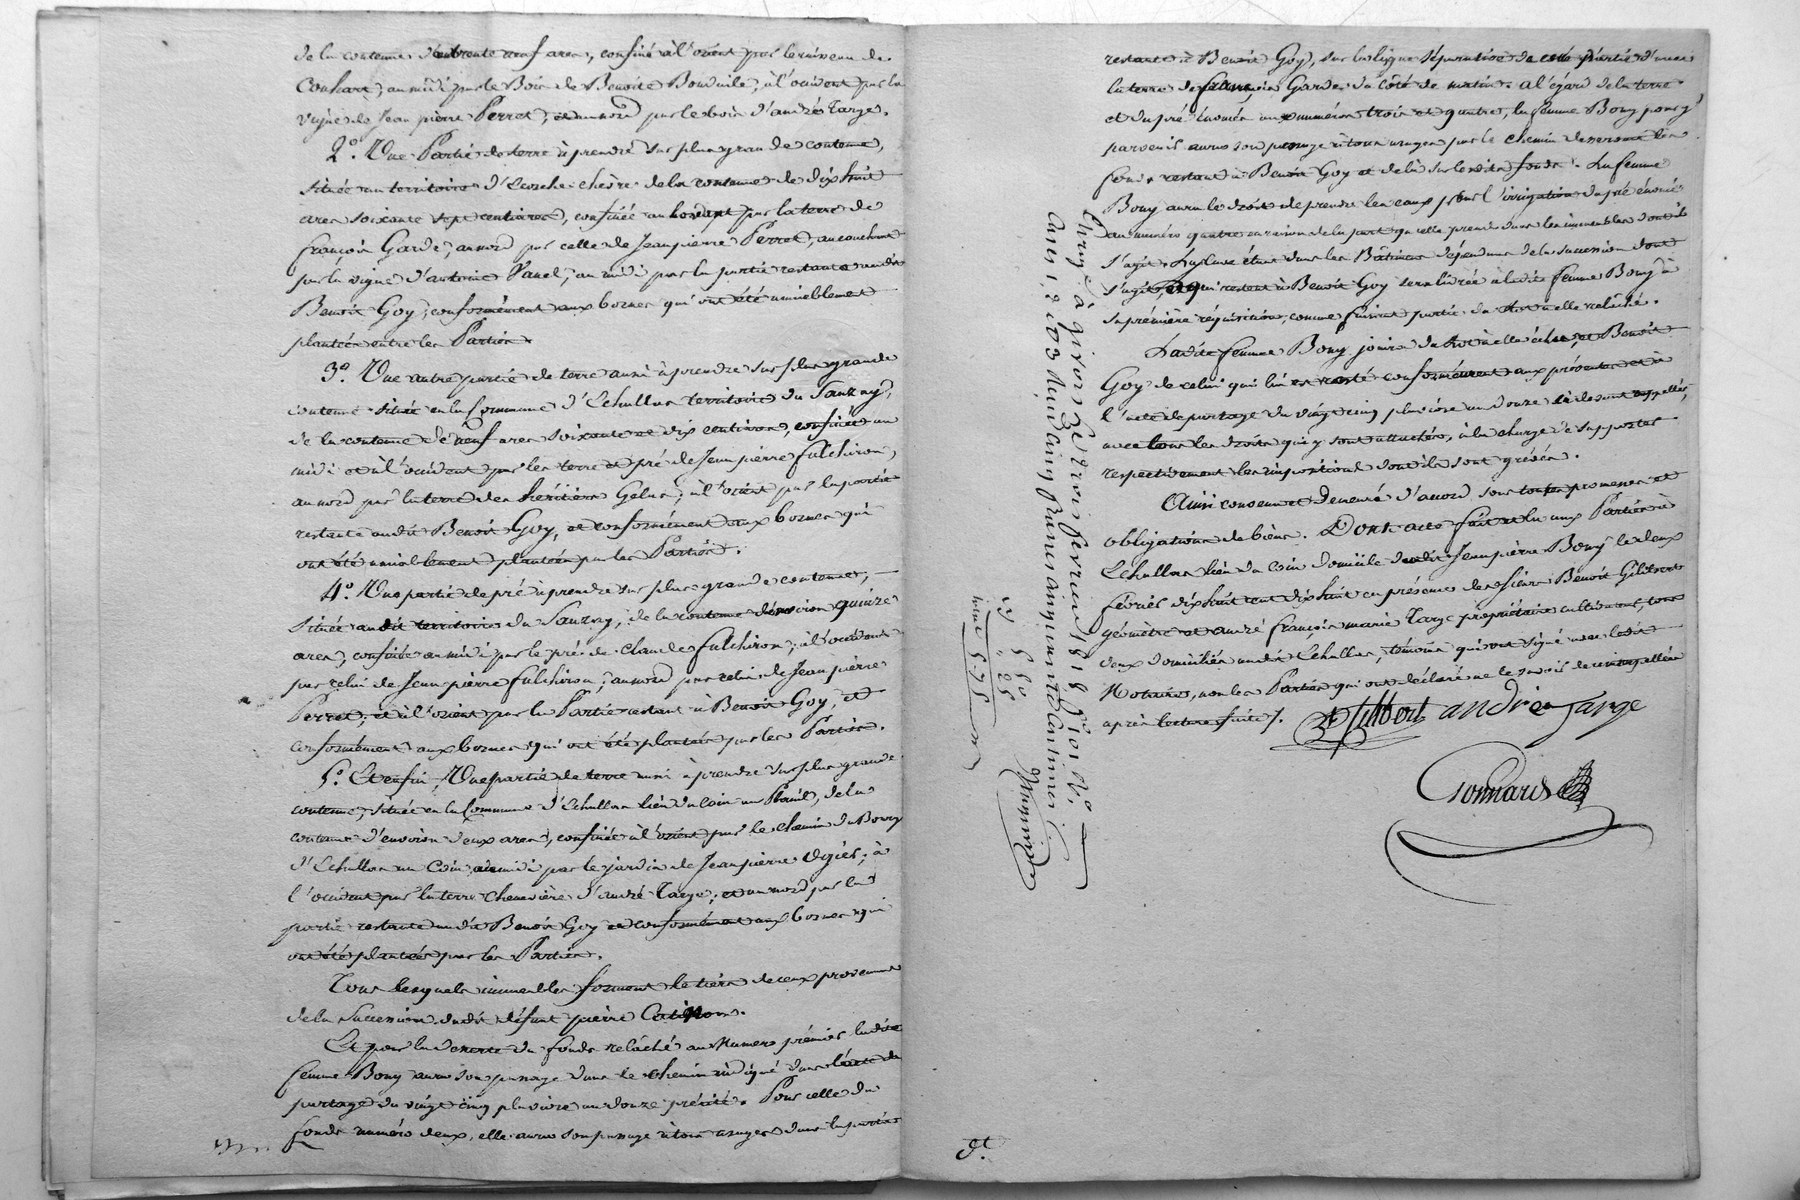 de la contenue d'entrente neuf ares, confiné à l'orient par le ruisseau de
Couhart, au midi par le Bois de Benoite Bonduile, à l'occident par la
vigne de Jean pierre Perret, et au nord par le bois d'andré Targe.
2.° Une Partie de terre à prendre sur plus grande contenue,
située au territoire d'Ecorche-chèvre de la contenue de dix huit
ares soixante sept centiares, confinée au par la terre de
françois Garde, au nord par celle de Jean pierre Perret, au couchant
par la vigne d'antoine Vanel, au midi par la partie restante audit
Benoit Goy, conformément aux bornes qui ont été amiablement
plantées entre les Parties.
3.° Une autre partie de terre aussi à prendre sur plus grande
contenue située en la Commune d'Echallas territoire du Sauzay,
de la contenue de neuf ares soixante et dix centiares, confinée au
midi et à l'occident par les terre et pré de Jean pierre fulchiron,
au nord par la terre des héritiers Gelas, à l'orient par la partie
restante audit Benoit Goy, et conformément aux bornes qui
ont été amiablement plantées par les Parties.
4.° Une partie de pré à prendre sur plus grande contenue,
située audit territoire du Sauzay, de la contenue d'environ quinze
ares, confinée au midi par le pré de Claude fulchiron, à l'occident
par celui de Jean pierre fulchiron, au nord par celui de Jean pierre
Perret, et à l'orient par la Partie restant à Benoit Goy, et
conformément aux bornes qui ont été plantées par les Parties.
5.° Et enfin, Une partie de terre aussi à prendre sur plus grande
contenue, située en la Commune d'Echallas lieu du Coin au Plail, de la
contenue d'environ deux ares, confinée à l'orient par le chemin du Bourg
d'Echallas au Coin, au midi par le jardin de Jean pierre Ogier, à
l'occident par la terre Chenevière d'andré Targe, et au nord par la
partie restante audit Benoit Goy et conformément aux bornes qui
ont été plantées par les Parties.
Tous lesquels immeubles forment le tiers de ceux provenant
de la Succession dudit défunt pierre
Et pour la desserte du fonds relâché au Numero premier ladite
femme Bony aura son passage dans le chemin indiqué dans l'acte de
partage du vingt cinq pluviose an douze précité. Pour celle du
fonds numéro deux, elle aura son passage à tous usages dans la partie
restante à Benoit Goy, sur la ligne séparative de cette partie d'avec
la terre de françois Garde, du côté de matin. a l'égard de la terre
et du pré énoncés aux numéros trois et quatre, la femme Bony pour y
parvenir aura son passage à tous usages par le chemin desservant les
fonds restant à Benoit Goy et de là sur lesdits fonds. La femme
Bony aura le droit de prendre les eaux pour l'irrigation du pré énoncé
au numéro quatre en raison de la part qu'elle prend dans les immeubles dont il
s'agit. La étant dans les Bâtimens dépendans de la succession dont
s'agit, et qui restent à Benoit Goy sera livrée à ladite femme Bony à
sa première réquisition, comme faisant partie du lot à elle relâché.
Ladite femme Bony jouira du lot à elle échu, et Benoit
Goy de celui qui lui est resté conformément aux présentes et à
l'acte de partage du vingt cinq pluviose an douze ci dessus rappellés,
avec tous les droits qui y sont attachés, à la charge de supporter
respectivement les impositions dont ils sont grévés.
Ainsi convenu et demeuré d'accord sous toutes promesses et
obligations de biens. Dont acte fait et lu aux Parties à
Echallas lieu du Coin domicile dudit Jean pierre Bony le deux
février dix huit cent dix huit en présence des sieurs Benoit Gilibert
géomètre et andré françois marie Targe propriétaire cultivateur, tous
deux domiciliés audit Echallas, témoins qui ont signé avec ledit
Notaire, non les Parties qui ont déclaré ne le savoir de ce interpellées
après lecture faite /.
Gilibert andré Targe
Gonnard
Enreg.é à givors le trois fevrier 1818 f.° 101 v.°